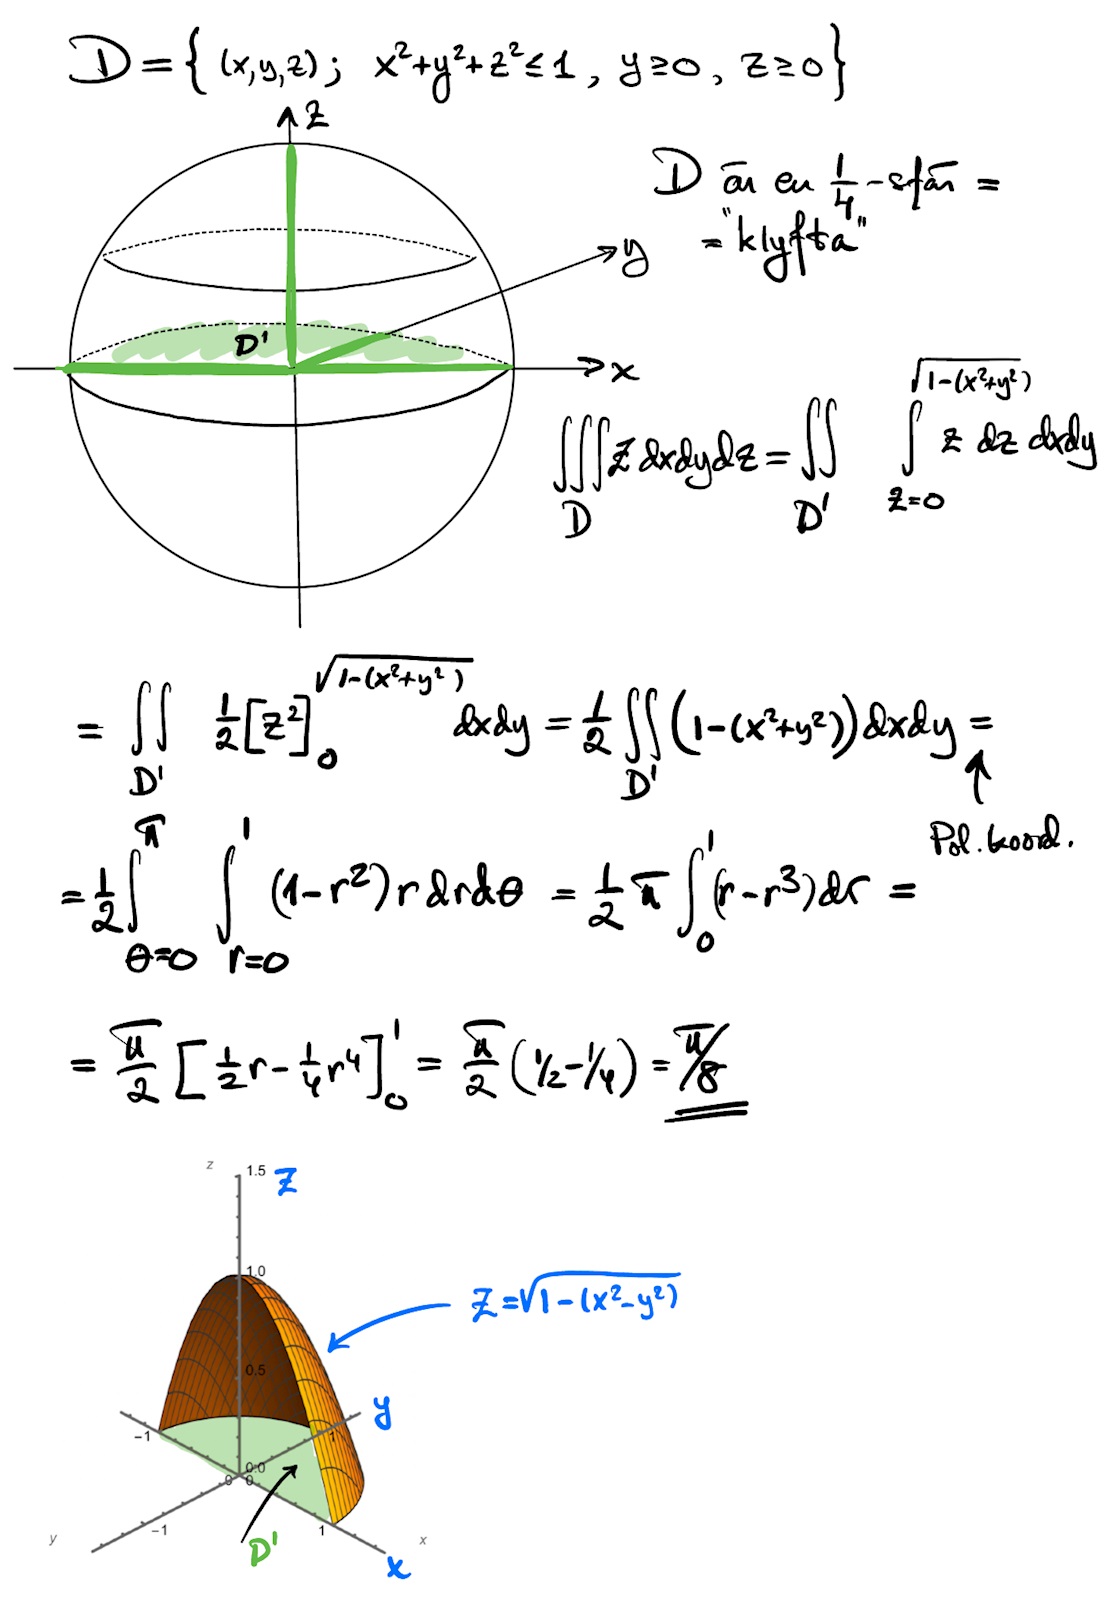 D = { (x,y,z) ; x²+y²+z² ≤ 1 , y ≥ 0 , z ≥ 0 }
z
D är en 1/4 -sfär =
= "klyfta"
y
D'
x
∭_D z dxdydz = ∬_D' ∫_{z=0}^{√(1-(x²+y²))} z dz dxdy
= ∬_D' 1/2 [z²]_0^{√(1-(x²+y²))} dxdy = 1/2 ∬_D' (1-(x²+y²)) dxdy =
↑
Pol. koord.
= 1/2 ∫_{θ=0}^{π} ∫_{r=0}^{1} (1-r²) r dr dθ = 1/2 π ∫_0^1 (r-r³) dr =
= π/2 [ 1/2 r - 1/4 r⁴ ]_0^1 = π/2 (1/2-1/4) = π/8
z
1.5
z
1.0
z=√(1-(x²-y²))
0.5
y
-1
1
0.0
0
0
y
-1
1
x
D'
x